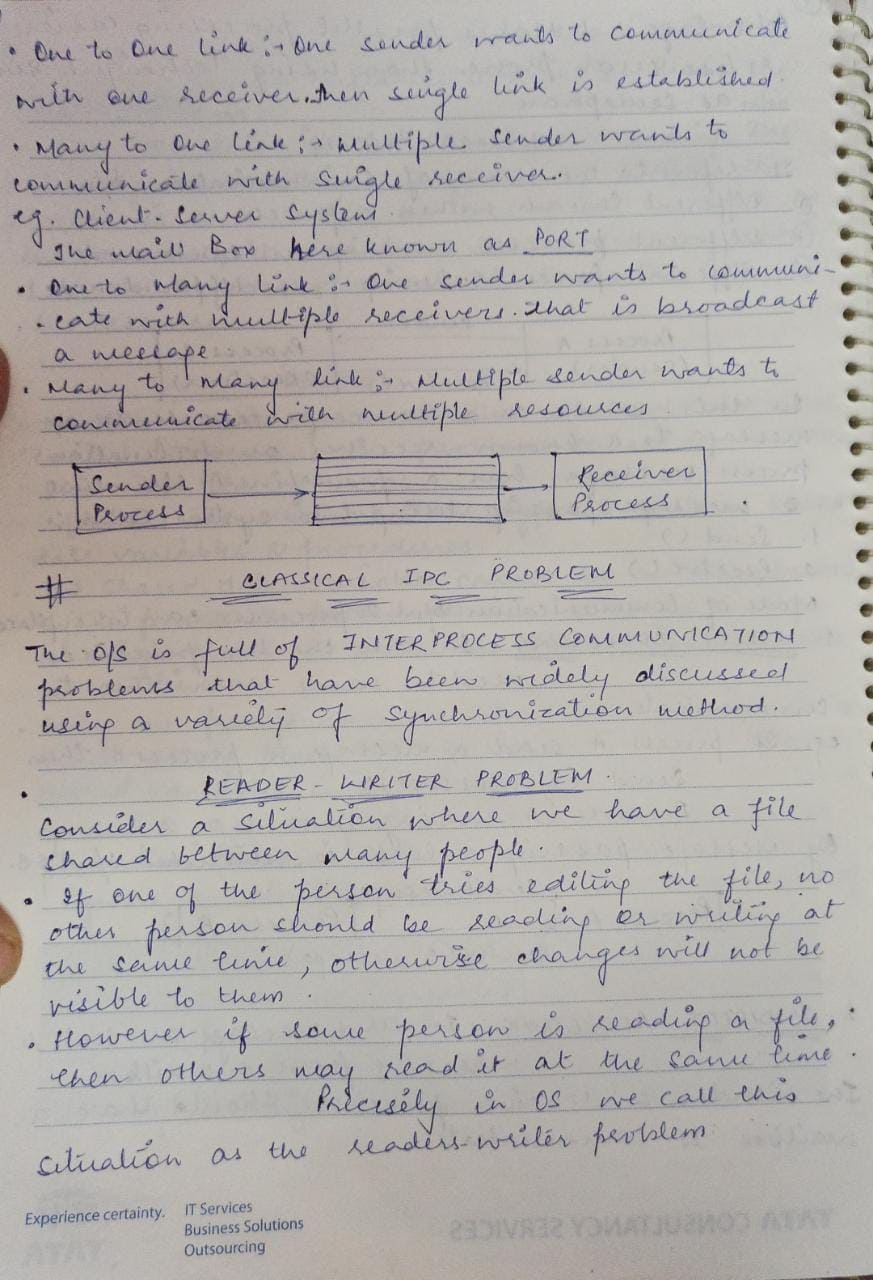 • One to One link :→ One sender wants to communicate
with one receiver. then single link is established.
• Many to One link :→ Multiple sender wants to
communicate with single receiver.
eg. Client-Server System.
The mail Box here known as PORT
• One to Many link :→ One sender wants to communi-
-cate with multiple receivers. that is broadcast
a message
• Many to many link :→ Multiple sender wants to
communicate with multiple resources
Sender
Process
Receiver
Process
# CLASSICAL IPC PROBLEM
The O/S is full of INTERPROCESS COMMUNICATION
problems that have been widely discussed
using a variety of synchronization method.
• READER-WRITER PROBLEM.
Consider a situation where we have a file
shared between many people.
• If one of the person tries editing the file, no
other person should be reading or writing at
the same time, otherwise changes will not be
visible to them.
• However if some person is reading a file,
then others may read it at the same time.
Precisely in OS we call this
situation as the readers-writer problem
Experience certainty.
IT Services
Business Solutions
Outsourcing
TATA CONSULTANCY SERVICES
TATA